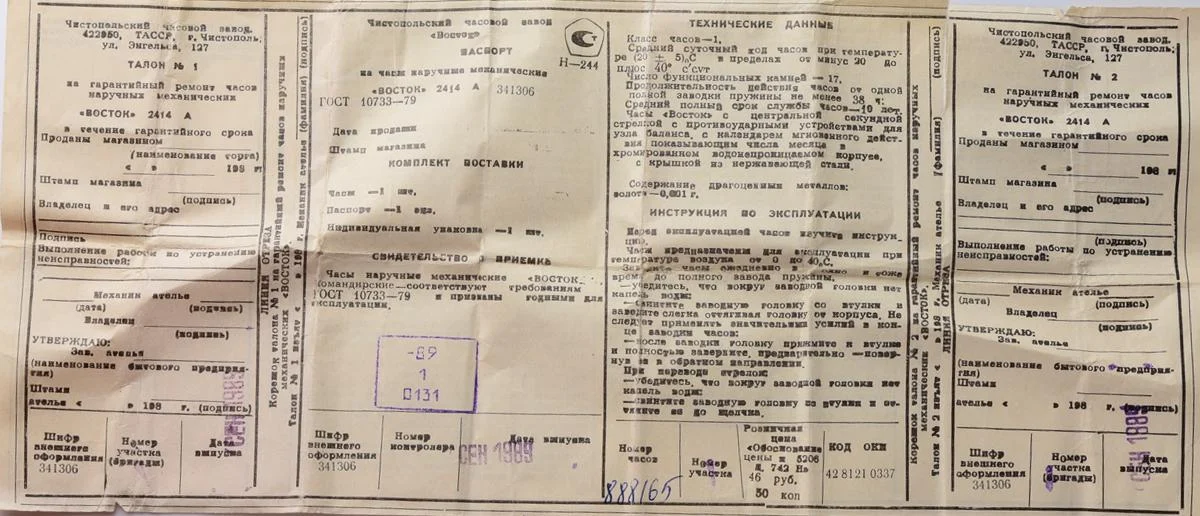 Чистопольский часовой завод.
422950, ТАССР, г. Чистополь;
ул. Энгельса, 127
ТАЛОН № 1
на гарантийный ремонт часов
наручных механических
«ВОСТОК» 2414 А
в течение гарантийного срока
Проданы магазином
(наименование торга)
« » 198 г.
Штамп магазина
(подпись)
Владелец и его адрес
Подпись
Выполнение работы по устранению
неисправностей:
Механик ателье
(дата) (подпись)
Владелец
(подпись)
УТВЕРЖДАЮ:
Зав. ателье
(наименование бытового предприя-
тия)
Штамп
ателье « » 198 г. (подпись)
Шифр внешнего оформления
341306
Номер участка (бригады)
Дата выпуска
СЕН 1989
ЛИНИЯ ОТРЕЗА
Корешок талона № 1 на гарантийный ремонт часов наручных
механических «ВОСТОК»
Талон № 1 изъят « » 198 г. Механик ателье (фамилия) (подпись)
Чистопольский часовой завод
«Восток»
ПАСПОРТ
Н—244
на часы наручные механические
«ВОСТОК» 2414 А 341306
ГОСТ 10733—79
Дата продажи
Штамп магазина
КОМПЛЕКТ ПОСТАВКИ
Часы —1 шт.
Паспорт —1 экз.
Индивидуальная упаковка —1 шт.
СВИДЕТЕЛЬСТВО О ПРИЕМКЕ
Часы наручные механические «ВОСТОК-
Командирские—соответствуют требованиям
ГОСТ 10733—79 и признаны годными для
эксплуатации.
-89
1
0131
Шифр внешнего оформления
341306
Номер контролера
Дата выпуска
СЕН 1989
ТЕХНИЧЕСКИЕ ДАННЫЕ
Класс часов—1,
Средний суточный ход часов при температу-
ре (20 ± 5)°С в пределах от минус 20 до
плюс 40° с/сут
Число функциональных камней — 17.
Продолжительность действия часов от одной
полной заводки пружины не менее 38 ч;
Средний полный срок службы часов—10 лет.
Часы «Восток» с центральной секундной
стрелкой с противоударными устройствами для
узла баланса, с календарем мгновенного дейст-
вия показывающим числа месяца в
хромированном водонепроницаемом корпусе,
с крышкой из нержавеющей стали.
Содержание драгоценных металлов:
золото—0,001 г.
ИНСТРУКЦИЯ ПО ЭКСПЛУАТАЦИИ
Перед эксплуатацией часов изучите инструк-
цию.
Часы предназначены для эксплуатации при
температуре воздуха от 0 до 40°С.
Заводите часы ежедневно в одно и тоже
время до полного завода пружины.
—убедитесь, что вокруг заводной головки нет
капель воды:
—Свинтите заводную головку со втулки и
заведите слегка оттягивая головку от корпуса. Не
следует применять значительных усилий в кон-
це заводки часов:
—после заводки головку прижмите к втулке
и полностью заверните, предварительно —повер-
нув ее в обратном направлении.
При переводе стрелок:
—убедитесь, что вокруг заводной головки нет
капель воды:
—свинтите заводную головку из втулки и от-
тяните ее до щелчка.
Номер часов
888165
Номер участка
Розничная цена «Обоснование цены и 5206
Д. 742 На
46 руб.
50 коп
КОД ОКП
42 8121 0337
Корешок талона № 2 на гарантийный ремонт часов наручных
механических «ВОСТОК»,
Талон № 2 изъят « » 198 г. Механик ателье (фамилия) (подпись)
ЛИНИЯ ОТРЕЗА
Чистопольский часовой завод.
422950, ТАССР, г. Чистополь;
ул. Энгельса, 127
ТАЛОН № 2
на гарантийный ремонт часов
наручных механических
«ВОСТОК» 2414 А
в течение гарантийного срока
Проданы магазином
(наименование торга)
« » 198 г.
Штамп магазина
(подпись)
Владелец и его адрес
(подпись)
Выполнение работы по устранению
неисправностей:
Механик ателье
(дата) (подпись)
Владелец
(подпись)
УТВЕРЖДАЮ:
Зав. ателье
(наименование бытового предприя-
тия)
Штамп
ателье « » 198 г. (подпись)
Шифр внешнего оформления
341306
Номер участка (бригады)
Дата выпуска
СЕН 1989